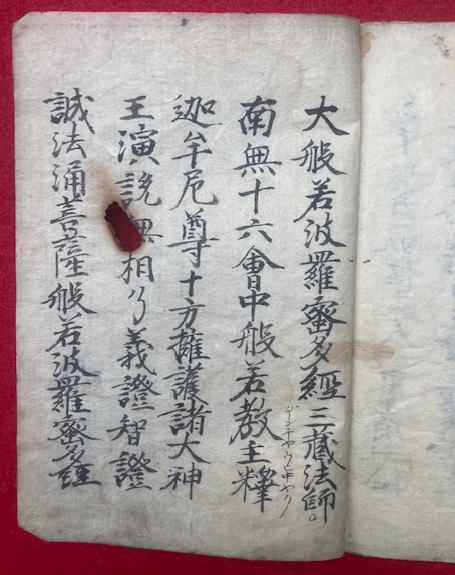 大般若波羅蜜多經三蔵法師。
南無十六會中般若教主釋
迦牟尼尊十方擁護諸大神
王演説無相了義證智證
誠法涌菩薩般若波羅蜜多經